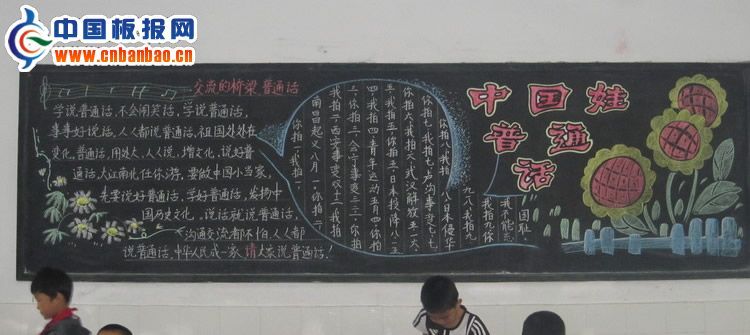 中国板报网
www.cnbanbao.cn
交流的桥梁 普通话
学说普通话,不会闹笑话,学说普通话,
事事好说话,人人都说普通话,祖国处处在
变化,普通话,用处大,人人说,增文化,说好普
通话,大江南北任你游,要做中国小当家,
先要说好普通话,学好普通话,发扬中
国历史文化,说话就说普通话,
沟通交流都不怕,人人都
说普通话,中华人民成一家,请大家说普通话!
你拍一我拍一,
南昌起义八月一.你拍二
我拍二西安事变双十二我拍
三,你拍三
四我拍四青年运动五月四你拍
五我拍五你拍五日本投降八一五
你拍六我拍六武汉解放五一六
你拍七我拍七卢沟事变七七
你拍八我拍八日本侵华
九一八我拍九
我拍九你
我不能忘
国耻.
中国娃
普通话